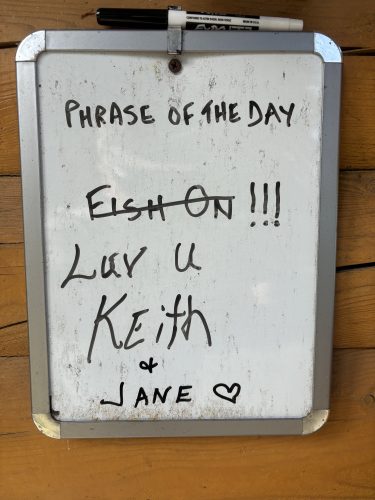 EXPO
PHRASE OF THE DAY
FISH ON !!!
Luv u
Keith
&
JANE ♡